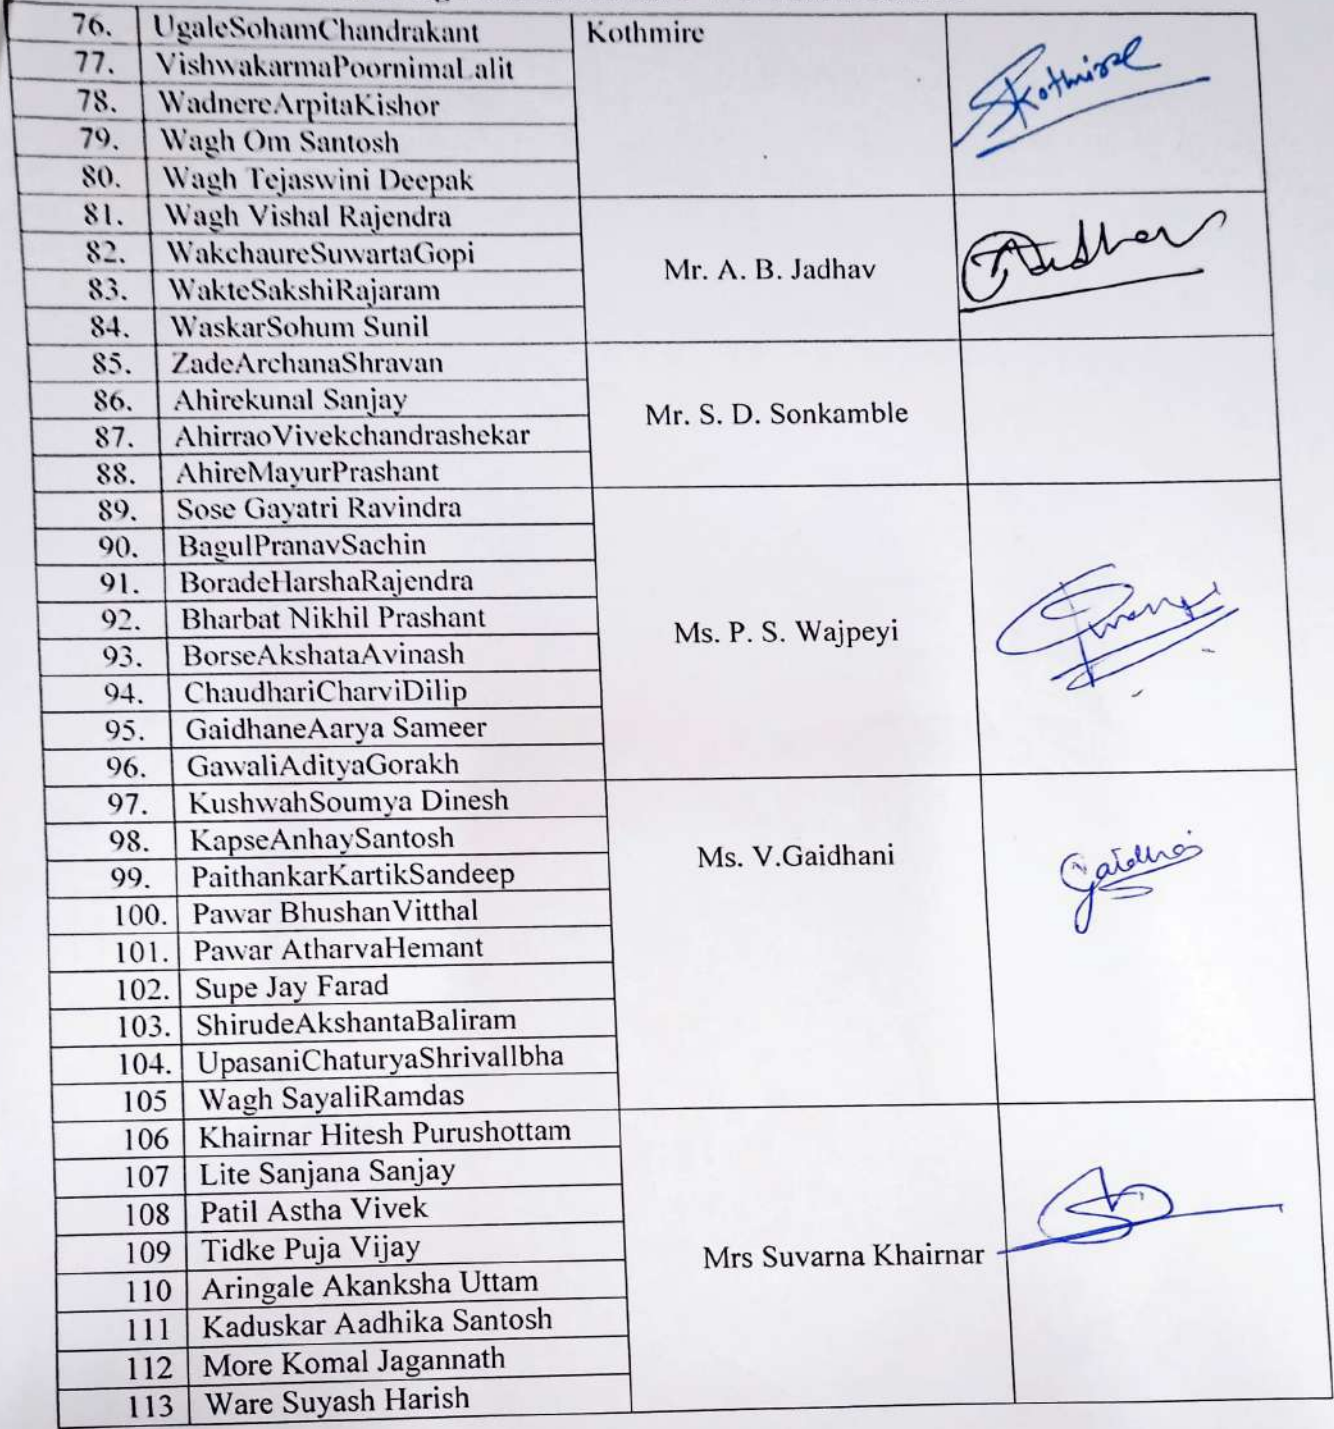 76. UgaleSohamChandrakant Kothmire
77. VishwakarmaPoornimaLalit
78. WadnereArpitaKishor
79. Wagh Om Santosh
80. Wagh Tejaswini Deepak
Kothmire
81. Wagh Vishal Rajendra
82. WakchaureSuwartaGopi
83. WakteSakshiRajaram
84. WaskarSohum Sunil
Mr. A. B. Jadhav
Jadhav
85. ZadeArchanaShravan
86. Ahirekunal Sanjay
87. AhirraoVivekchandrashekar
88. AhireMayurPrashant
Mr. S. D. Sonkamble
89. Sose Gayatri Ravindra
90. BagulPranavSachin
91. BoradeHarshaRajendra
92. Bharbat Nikhil Prashant
93. BorseAkshataAvinash
94. ChaudhariCharviDilip
95. GaidhaneAarya Sameer
96. GawaliAdityaGorakh
Ms. P. S. Wajpeyi
97. KushwahSoumya Dinesh
98. KapseAnhaySantosh
99. PaithankarKartikSandeep
100. Pawar BhushanVitthal
101. Pawar AtharvaHemant
102. Supe Jay Farad
103. ShirudeAkshantaBaliram
104. UpasaniChaturyaShrivallbha
105 Wagh SayaliRamdas
Ms. V.Gaidhani
106 Khairnar Hitesh Purushottam
107 Lite Sanjana Sanjay
108 Patil Astha Vivek
109 Tidke Puja Vijay
110 Aringale Akanksha Uttam
111 Kaduskar Aadhika Santosh
112 More Komal Jagannath
113 Ware Suyash Harish
Mrs Suvarna Khairnar